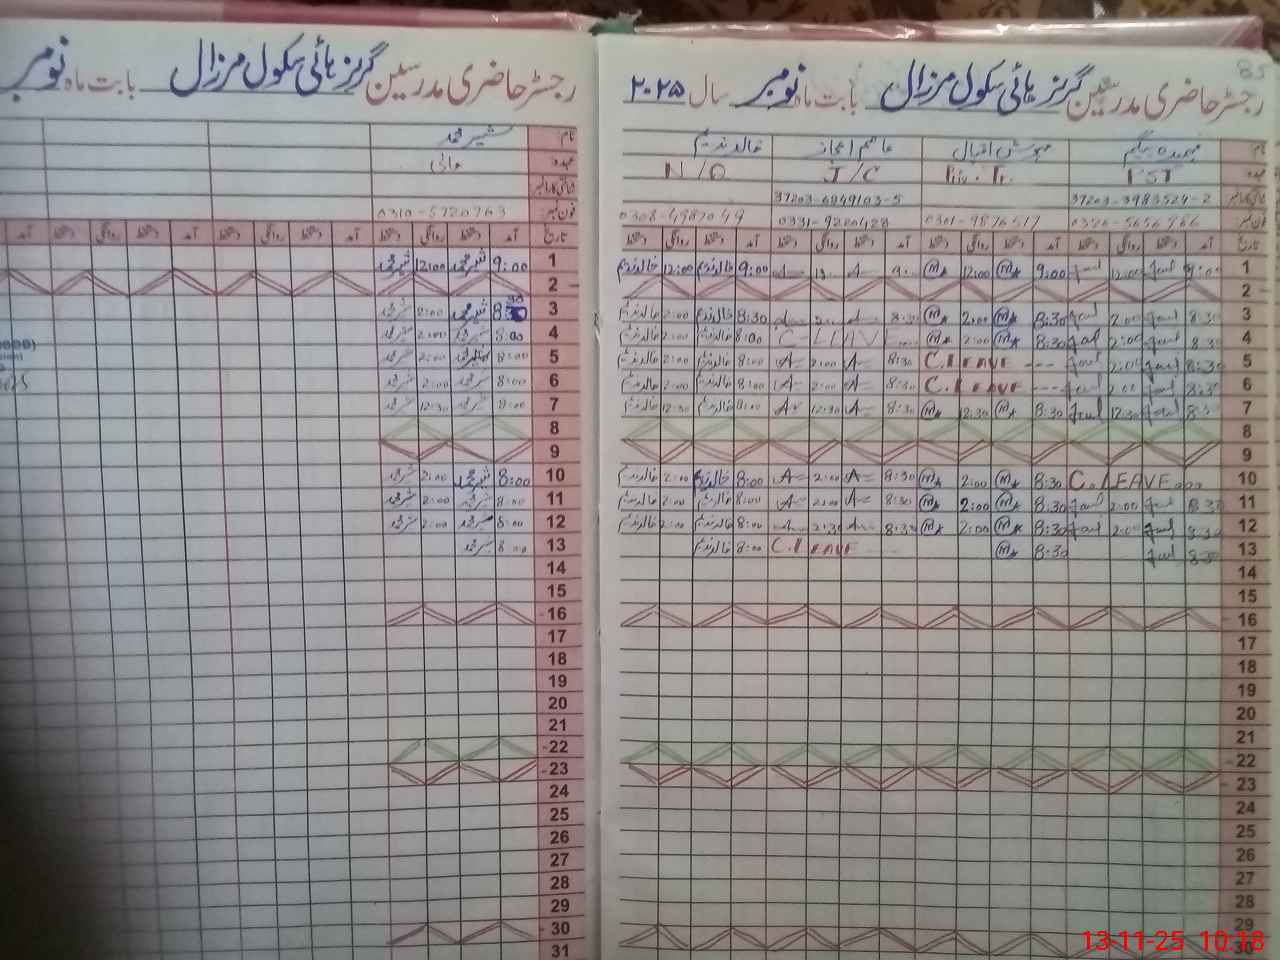 رجسٹر حاضری مدرسین گرلز ہائی سکول مرزال بابت ماہ نومبر سال ۲۰۲۵
85
نام: حمیدہ بیگم مہوش اقبال عاصم اعجاز خالد ندیم
عہدہ: PST J/C N/Q
شناختی کارڈ نمبر 37203-3983524-2 37203-6949103-5
فون نمبر: 0336-5656966 0301-9876517 0331-9220428 0308-4987049
تاریخ آمد دستخط روانگی دستخط آمد دستخط روانگی دستخط آمد دستخط روانگی دستخط آمد دستخط روانگی دستخط
1 9:00 12:00 9:00 12:00 9:00 خالد ندیم 12:00 خالد ندیم
2
3 8:30 2:00 8:30 2:00 8:30 8:30 خالد ندیم 2:00 خالد ندیم
4 8:30 2:00 8:30 2:00 C-LEAVE 8:00 خالد ندیم 2:00 خالد ندیم
5 8:30 2:00 C.LEAVE --- 8:30 2:00 8:00 خالد ندیم 2:00 خالد ندیم
6 8:30 2:00 C.LEAVE --- 8:30 2:00 8:00 خالد ندیم 2:00 خالد ندیم
7 8:30 12:30 8:30 12:30 8:30 12:30 8:00 خالد ندیم 12:30 خالد ندیم
8
9
10 C.LEAVE 8:30 2:00 8:30 2:00 8:00 خالد ندیم 2:00 خالد ندیم
11 8:30 2:00 8:30 2:00 8:30 2:00 8:00 خالد ندیم 2:00 خالد ندیم
12 8:30 2:00 8:30 2:00 8:30 2:30 8:00 خالد ندیم 2:00 خالد ندیم
13 8:30 8:30 C.LEAVE 8:00 خالد ندیم
14
15
16
17
18
19
20
21
22
23
24
25
26
27
28
29
30
رجسٹر حاضری مدرسین گرلز ہائی سکول مرزال بابت ماہ نومبر
نام: شبیر محمد
عہدہ: مالی
شناختی کارڈ نمبر
فون نمبر: 0310-5720763
تاریخ آمد دستخط روانگی دستخط آمد دستخط روانگی دستخط آمد دستخط روانگی دستخط آمد
1 9:00 شبیر محمد 12:00 شبیر محمد
2
3 8:30 شبیر محمد 2:00 شبیر محمد
4 8:00 شبیر محمد 2:00 شبیر محمد
5 8:00 2:00 شبیر محمد
6 8:00 شبیر محمد 2:00 شبیر محمد
7 8:00 شبیر محمد 12:30 شبیر محمد
8
9
10 8:00 شبیر محمد 2:00 شبیر محمد
11 8:00 شبیر محمد 2:00 شبیر محمد
12 8:00 شبیر محمد 2:00 شبیر محمد
13 8:00 شبیر محمد
14
15
16
17
18
19
20
21
22
23
24
25
26
27
28
29
30
31
13-11-25 10:18